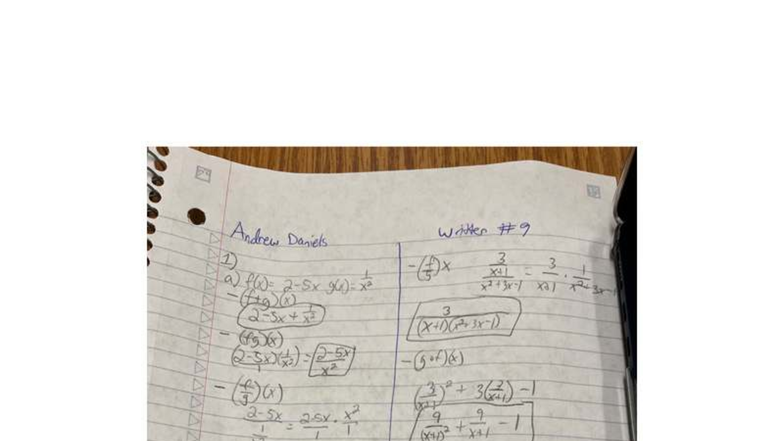 Andrew Daniels
Written #9
1)
a) f(x)= 2-5x g(x)= 1/x²
- (f+g)(x)
2-5x + 1/x²
- (fg)(x)
(2-5x)/1 (1/x²) = (2-5x)/x²
- (f/g)(x)
(2-5x)/(1/ = (2-5x)/1 · x²/1
- (f/g)x (3/(x+1))/(x²+3x-1) = 3/(x+1) · 1/(x²+3x-1)
3/((x+1)(x²+3x-1))
- (g∘f)(x)
(3/(x+1))² + 3(3/(x+1)) -1
9/(x+1)² + 9/(x+1) - 1